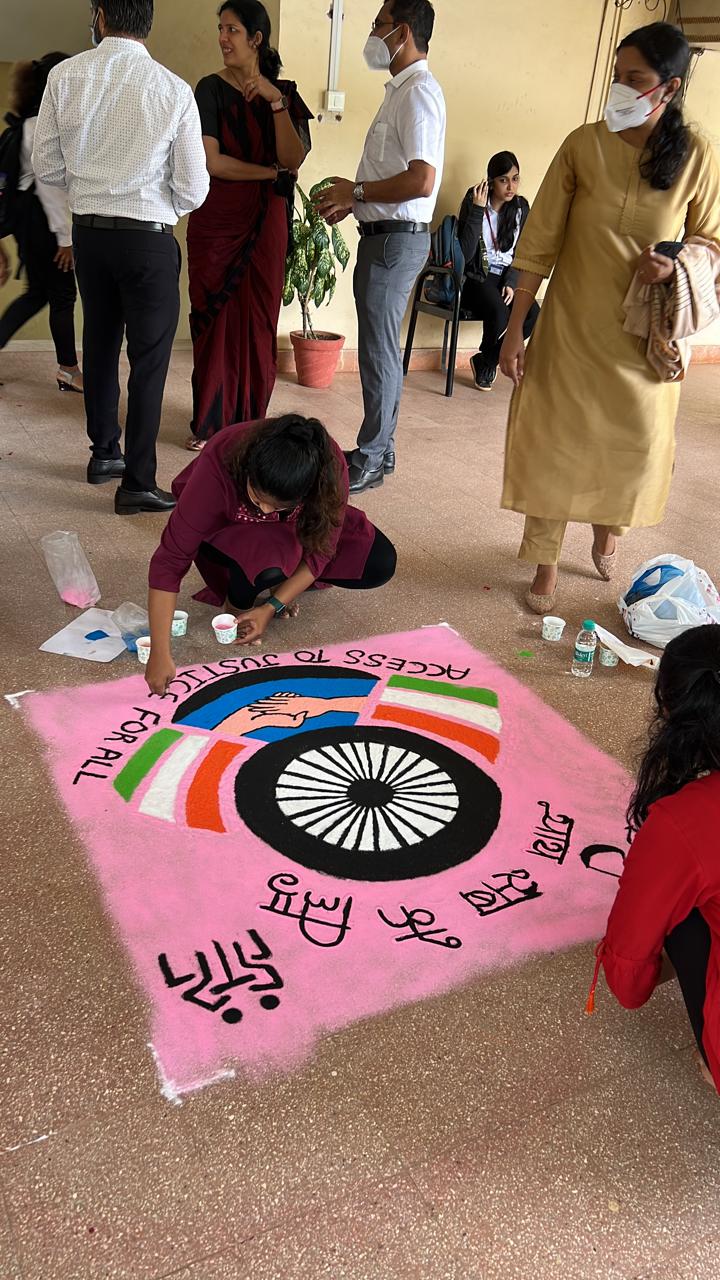 ACCESS TO JUSTICE FOR ALL
न्याय सब के